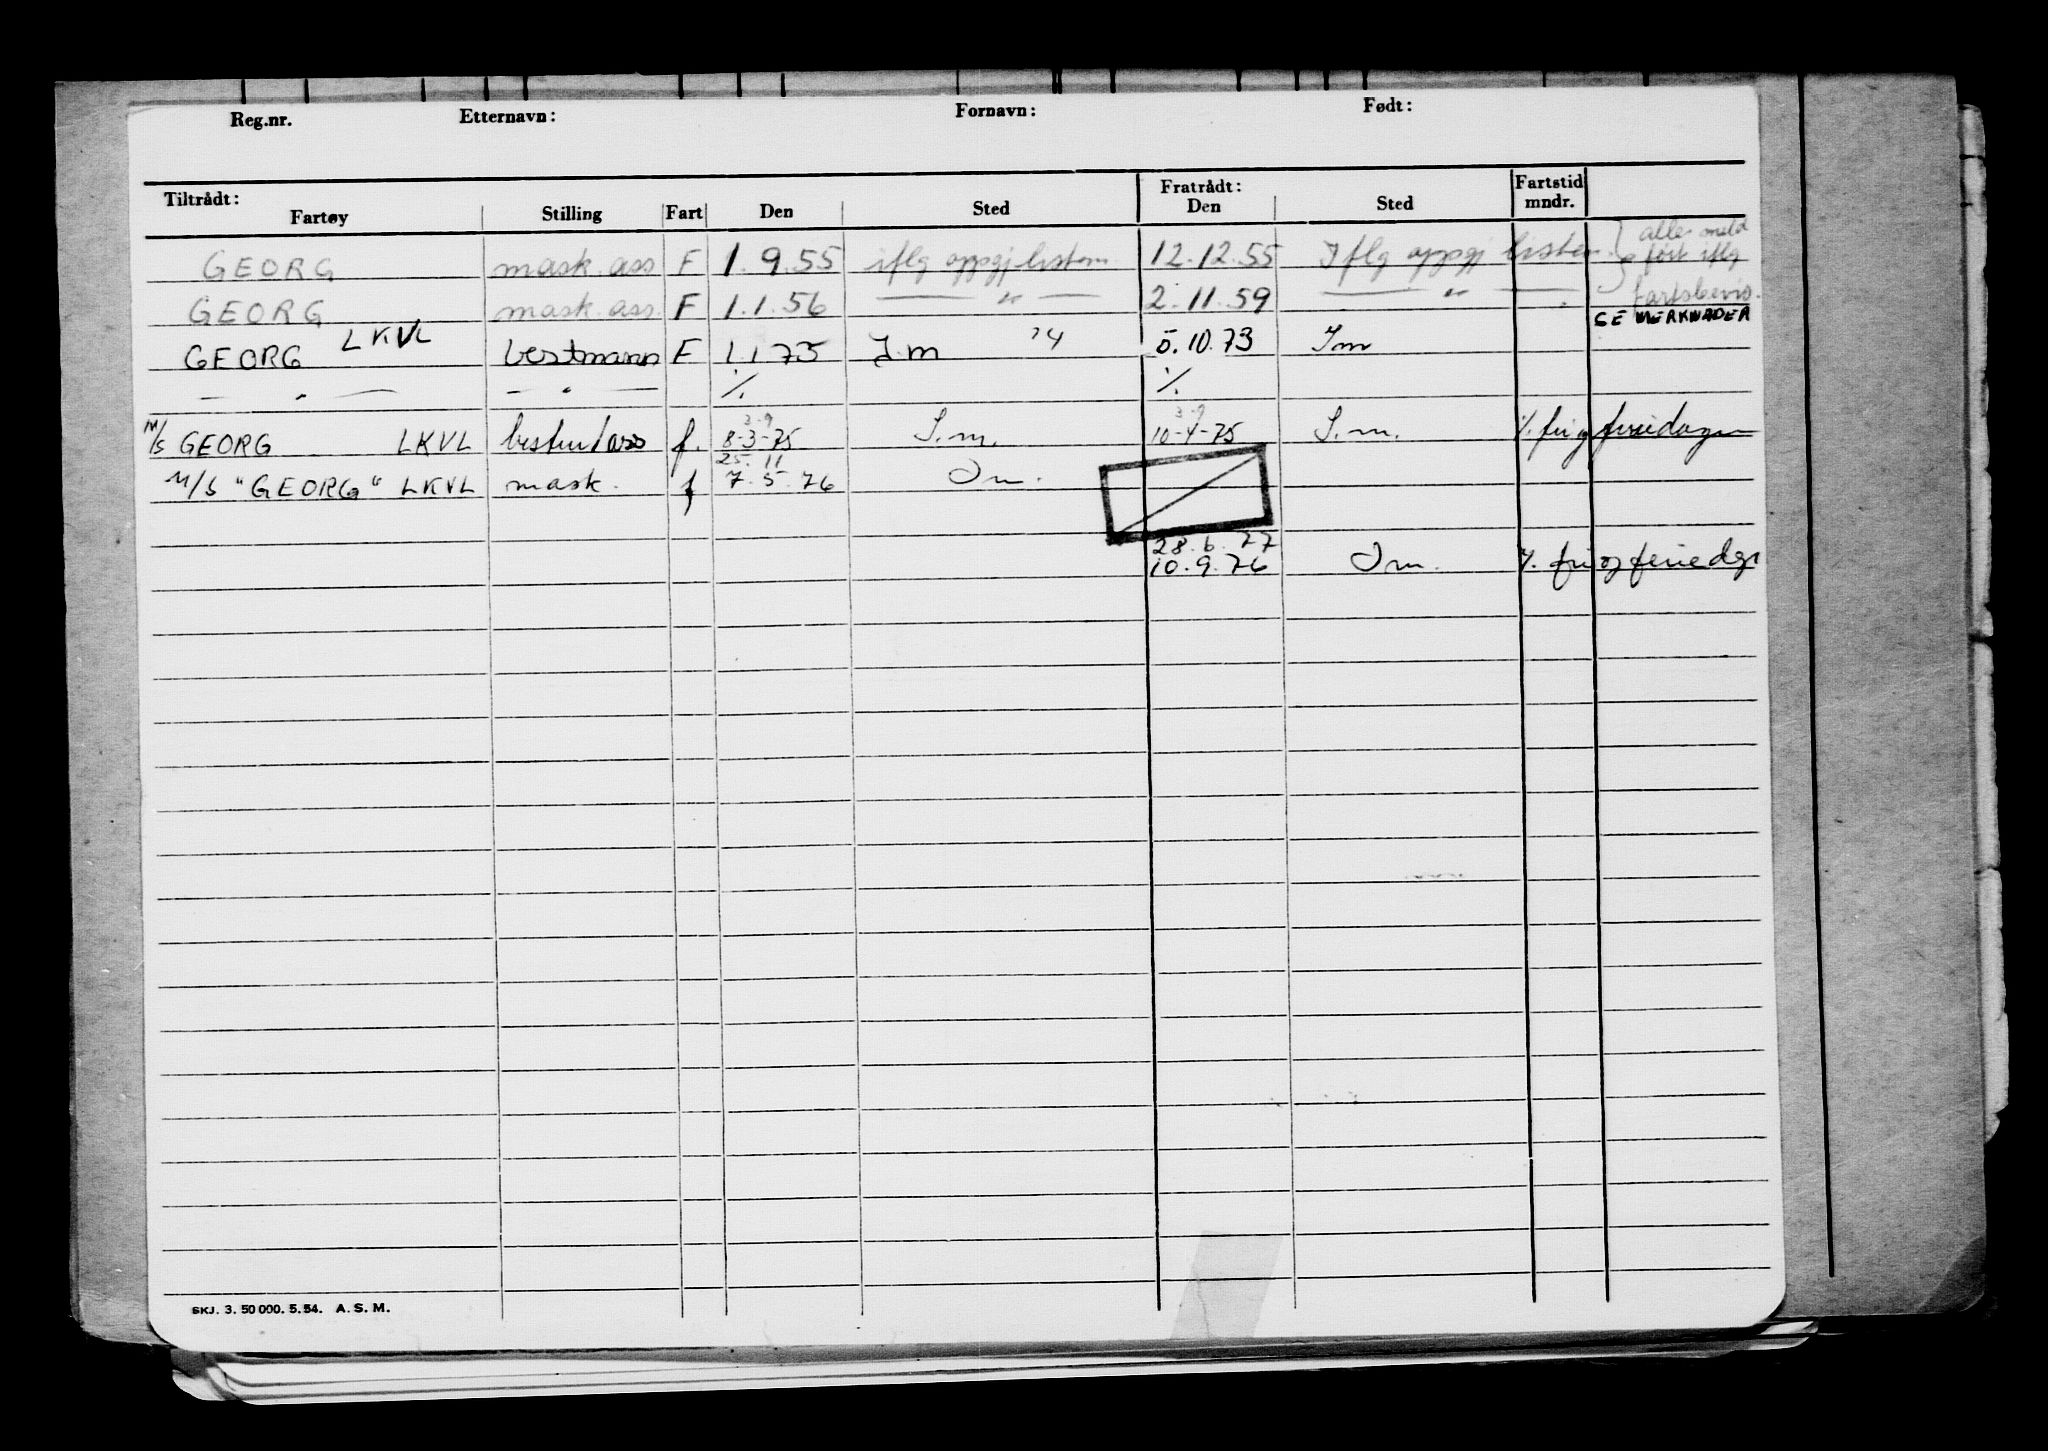 Reg.nr. Etternavn: Fornavn: Født:
Tiltrådt: Fratrådt: Fartstid
Fartøy Stilling Fart Den Sted Den Sted mndr.
GEORG mask. ass F 1.9.55 iflg oppgj listen. 12.12.55 Iflg oppgj listen. alle meld
ført iflg
GEORG mask. ass. F 1.1.56 — " — 2.11.59 — " — fartsbevis.
SE MERKNADER
GEORG LKVL bestmann F 1.1 73 I.m '4 5.10.73 Im
— " — — " — %. %.
3-9 3-9
M/S GEORG LKVL bestm/ass f. 8-3-75 I.m. 10-4-75 I.m. %. fri og feriedager
25. 11
M/S "GEORG" LKVL mask. f 7.5.76 Im.
28.6.77
10.9.76 Im. %. fri og feriedgr
SKJ. 3. 50 000. 5.54. A.S.M.